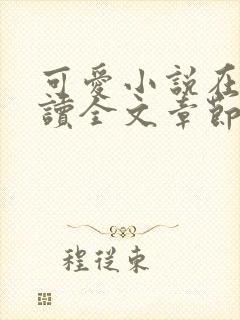 可愛小說在
讀全文章節
程從東